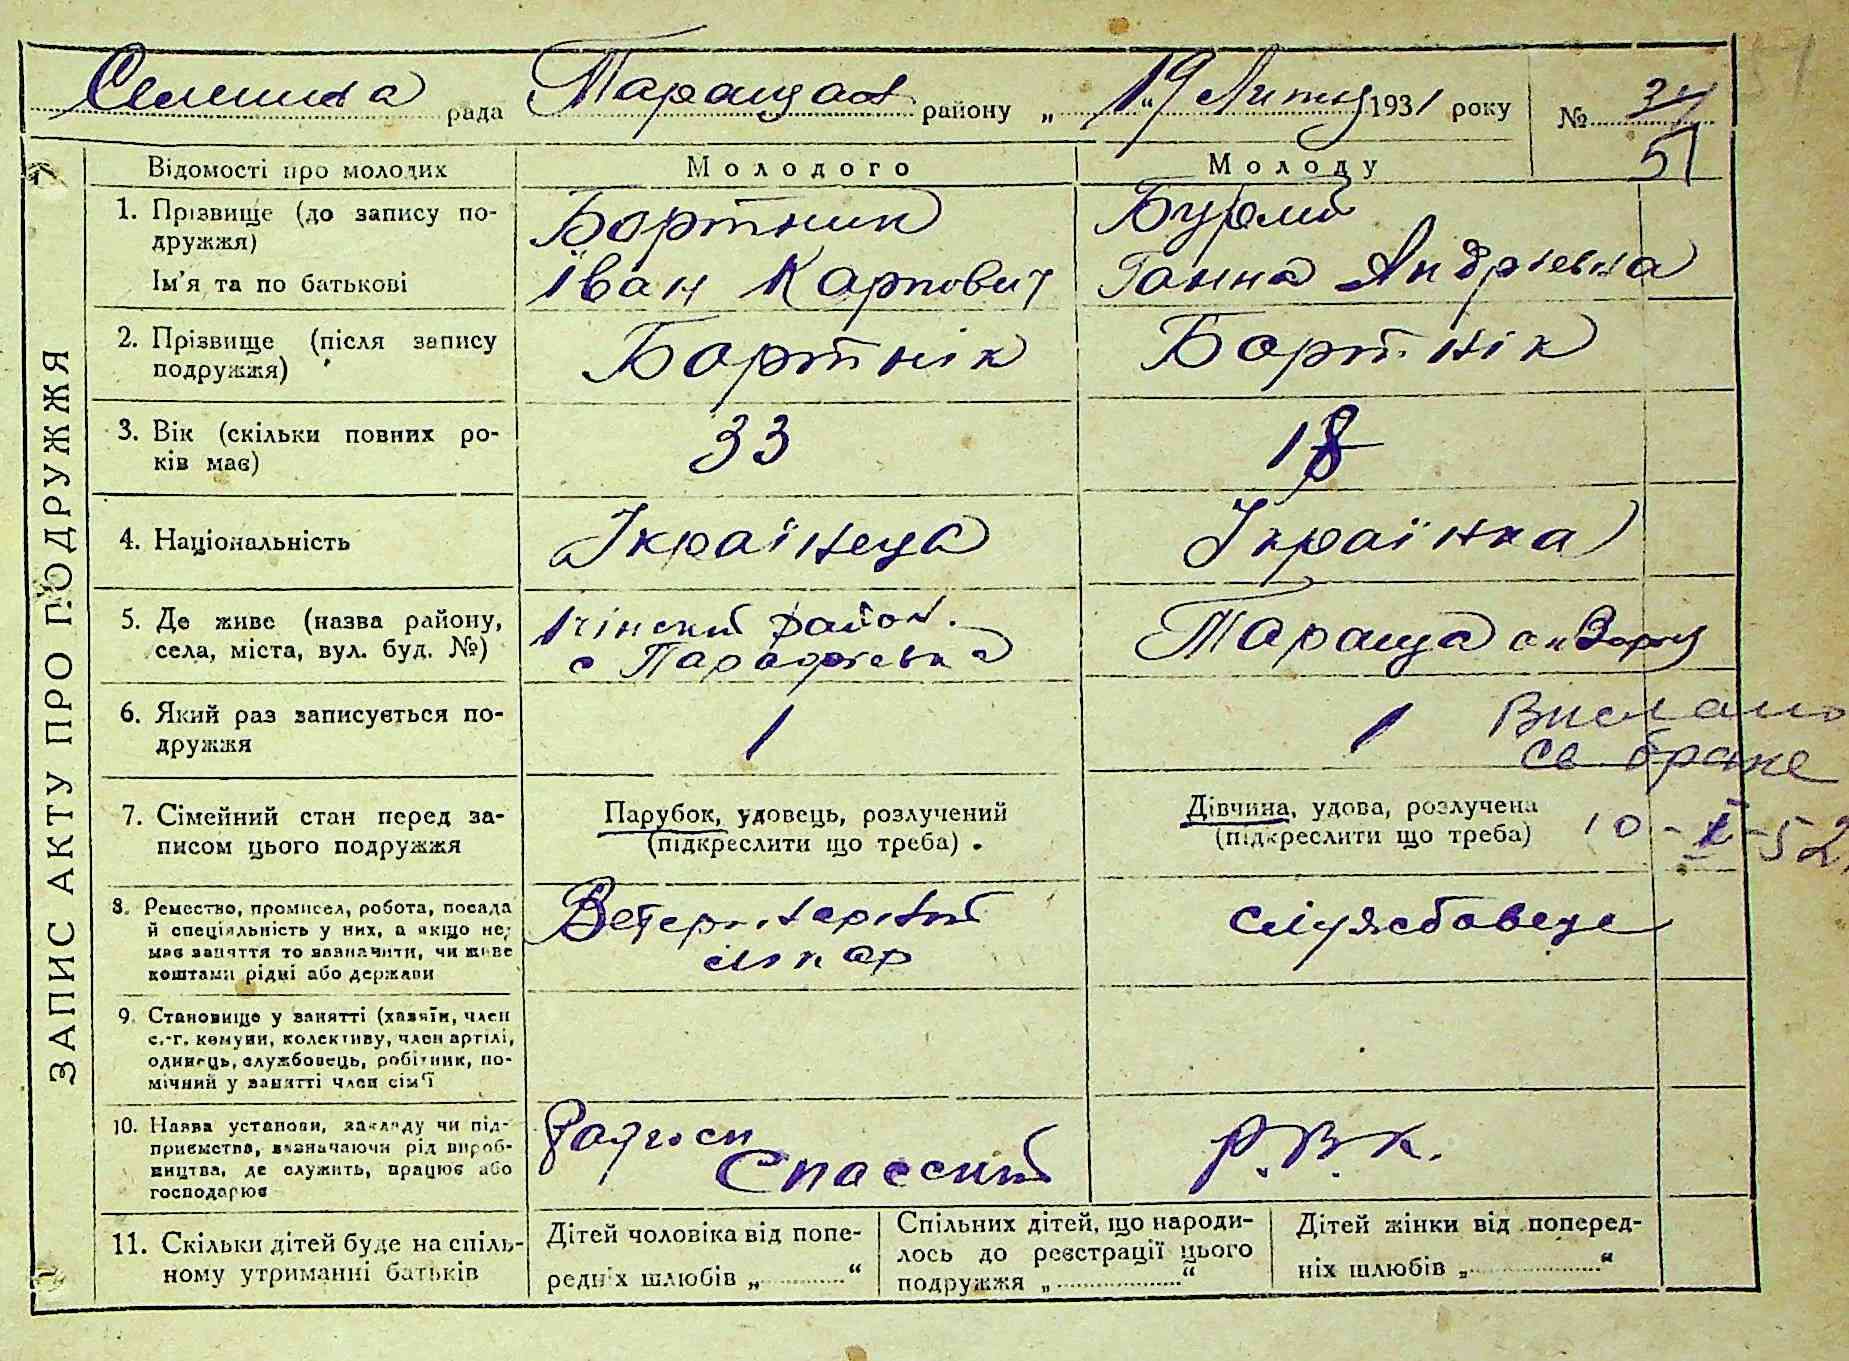 Селищна рада Таращан району „19“ Лютня 1931 року № 34
51
ЗАПИС АКТУ ПРО ПОДРУЖЖЯ
Відомості про молодих Молодого Молоду
1. Прізвище (до запису по-
дружжя)
Ім'я та по батькові
Бортник
Іван Карпович
Ганна Андріевна
2. Прізвище (після запису
подружжя)
Бортнік Бортнік
3. Вік (скільки повних ро-
ків має)
33 18
4. Національність
Українець Українка
5. Де живе (назва району,
села, міста, вул. буд. №)
Ічінский район.
с Парафієвка
Тараща
6. Який раз записується по-
дружжя
1 1
Выслано
св браке
10-I-52
7. Сімейний стан перед за-
писом цього подружжя
Парубок, удовець, розлучений
(підкреслити що треба).
Дівчина, удова, розлучена
(підкреслити що треба)
8. Ремество, промисел, робота, посада
й спеціяльність у них, а якщо не
має заняття то зазначити, чи живе
коштами рідні або держави
Ветеринарний
лікар
службовець
9. Становище у занятті (хазяїн, член
с.-г. комуни, колективу, член артілі,
одинець, службовець, робітник, по-
мічний у занятті член сім'ї
10. Назва установи, закладу чи під-
приємства, зазначаючи рід вироб-
ництва, де служить, працює або
господарює
Спасский
Р.В.К.
11. Скільки дітей буде на спіль-
ному утриманні батьків
Дітей чоловіка від попе-
редніх шлюбів „ “
Спільних дітей, що народи-
лось до реєстрації цього
подружжя „ “
Дітей жінки від поперед-
ніх шлюбів „ “